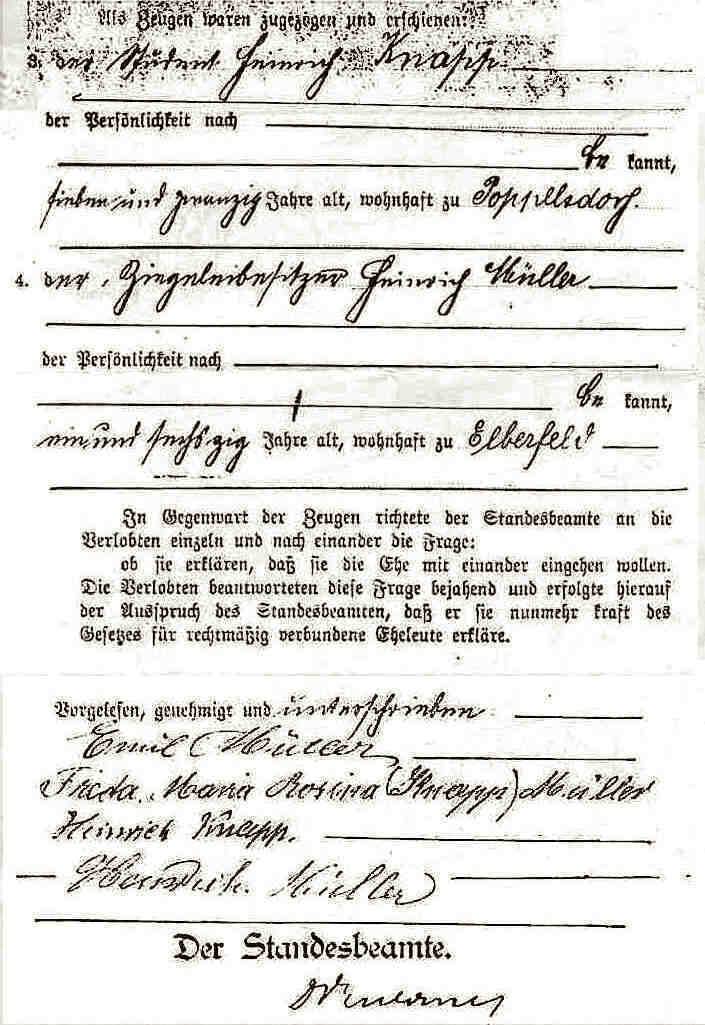 Als Zeugen waren zugezogen und erschienen:
3. der Student Heinrich Knapp
der Persönlichkeit nach
be kannt,
sieben und zwanzig Jahre alt, wohnhaft zu Poppelsdorf.
4. der Ziegeleibesitzer Heinrich Müller
der Persönlichkeit nach
be kannt,
ein und sechszig Jahre alt, wohnhaft zu Elberfeld
In Gegenwart der Zeugen richtete der Standesbeamte an die
Verlobten einzeln und nach einander die Frage:
ob sie erklären, daß sie die Ehe mit einander eingehen wollen.
Die Verlobten beantworteten diese Frage bejahend und erfolgte hierauf
der Ausspruch des Standesbeamten, daß er sie nunmehr kraft des
Gesetzes für rechtmäßig verbundene Eheleute erkläre.
Vorgelesen, genehmigt und unterschrieben
Emil Müller
Frieda Maria Rosina (Knapp) Müller
Heinrich Knapp.
Heinrich Müller
Der Standesbeamte.